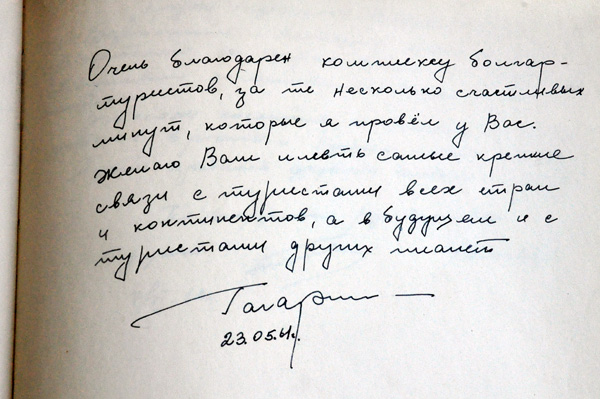 Очень благодарен комплексу болгар-
туристов, за те несколько счастливых
минут, которые я провёл у Вас.
Желаю Вам иметь самые крепкие
связи с туристами всех стран
и континентов, а в будущем и с
туристами других планет
Гагарин
23.05.61г.